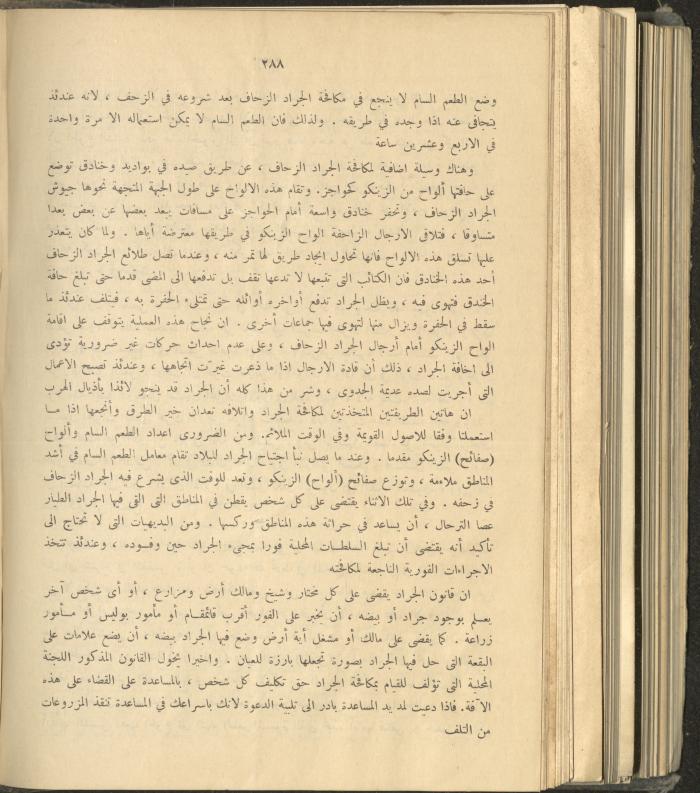 ٢٨٨
وضع الطعم السام لا ينجع في مكافحة الجراد الزحاف بعد شروعه في الزحف ، لانه عندئذ
يتجافى عنه اذا وجده في طريقه . ولذلك فان الطعم السام لا يمكن استعماله الا مرة واحدة
في الاربع وعشرين ساعة
وهناك وسيلة اضافية لمكافحة الجراد الزحاف ، عن طريق صيده في بواديد وخنادق توضع
على حافتها ألواح من الزينكو كحواجز. وتقام هذه الالواح على طول الجبهة المتجهة نحوها جيوش
الجراد الزحاف ، وتحفر خنادق واسعة أمام الحواجز على مسافات يبعد بعضها عن بعض بعدا
متساوقا ، فتلافى الارجال الزاحفة الواح الزينكو في طريقها معترضة أياها . ولما كان يتعذر
عليها تسلق هذه الالواح فانها تحاول ايجاد طريق لها تمر منه ، وعندما تصل طلائع الجراد الزحاف
أحد هذه الخنادق فان الكتائب التى تتبعها لا تدعها تقف بل تدفعها الى المضى قدما حتى تبلغ حافة
الخندق فتهوى فيه ، ويظل الجراد تدفع أواخره أوائله حتى تمتلىء الحفرة به ، فيتلف عندئذ ما
سقط في الحفرة ويزال منها لتهوى فيها جماعات أخرى . ان نجاح هذه العملية يتوقف على اقامة
الواح الزينكو أمام أرجال الجراد الزحاف ، وعلى عدم احداث حركات غير ضرورية تؤدى
الى اخافة الجراد ، ذلك أن قادة الارجال اذا ما ذعرت غيرت اتجاهها ، وعندئذ تصبح الاعمال
التى أجريت لصده عديمة الجدوى ، وشر من هذا كله أن الجراد قد ينجو لائذا بأذيال الهرب
ان هاتين الطريقتين المتخذتين لمكافحة الجراد واتلافه تعدان خير الطرق وأنجعها اذا مــا
استعملتا وفقا للاصول القويمة وفي الوقت الملائم. ومن الضرورى اعداد الطعم السام وألواح
(صفائح) الزينكو مقدما . وعند ما يصل نبأ اجتياح الجراد للبلاد تقام معامل الطعم السام في أشد
المناطق ملاءمة ، وتوزع صفائح (ألواح) الزينكو ، وتعد للوقت الذى يشرع فيه الجراد الزحاف
في زحفه . وفي تلك الاثناء يقتضى على كل شخص يقطن في المناطق التى القى فيها الجراد الطيار
عصا الترحال ، أن يساعد في حراثة هذه المناطق وركسها . ومن البديهيات التى لا تحتاج الى
تأكيد أنه يقتضى أن تبلغ السلطـات المحلية فورا بمجىء الجراد حين وفـوده ، وعندئذ تتخذ
الاجراءات الفورية الناجعة لمكافحته
ان قانون الجراد يقضى على كل مختار وشيخ ومالك أرض ومزارع ، أو أى شخص آخر
يعـلم بوجود جراد أو بيضه ، أن يخبر على الفور أقرب قائمقـام أو مأمور بوليس أو مــأمور
زراعة . كما يقضى على مالك أو مشغل أية أرض وضع فيها الجراد بيضه ، أن يضع علامات على
البقعة التى حل فيها الجراد بصورة تجعلها بارزة للعيان . واخيرا يخول القانون المذكور اللجنة
المحلية التى تؤلف للقيام بمكافحة الجراد حق تكليف كل شخص ، بالمساعدة على القضاء على هذه
الآفة. فاذا دعيت لمد يد المساعدة بادر الى تلبية الدعوة لانك باسراعك في المساعدة تنقذ المزروعات
من التلف